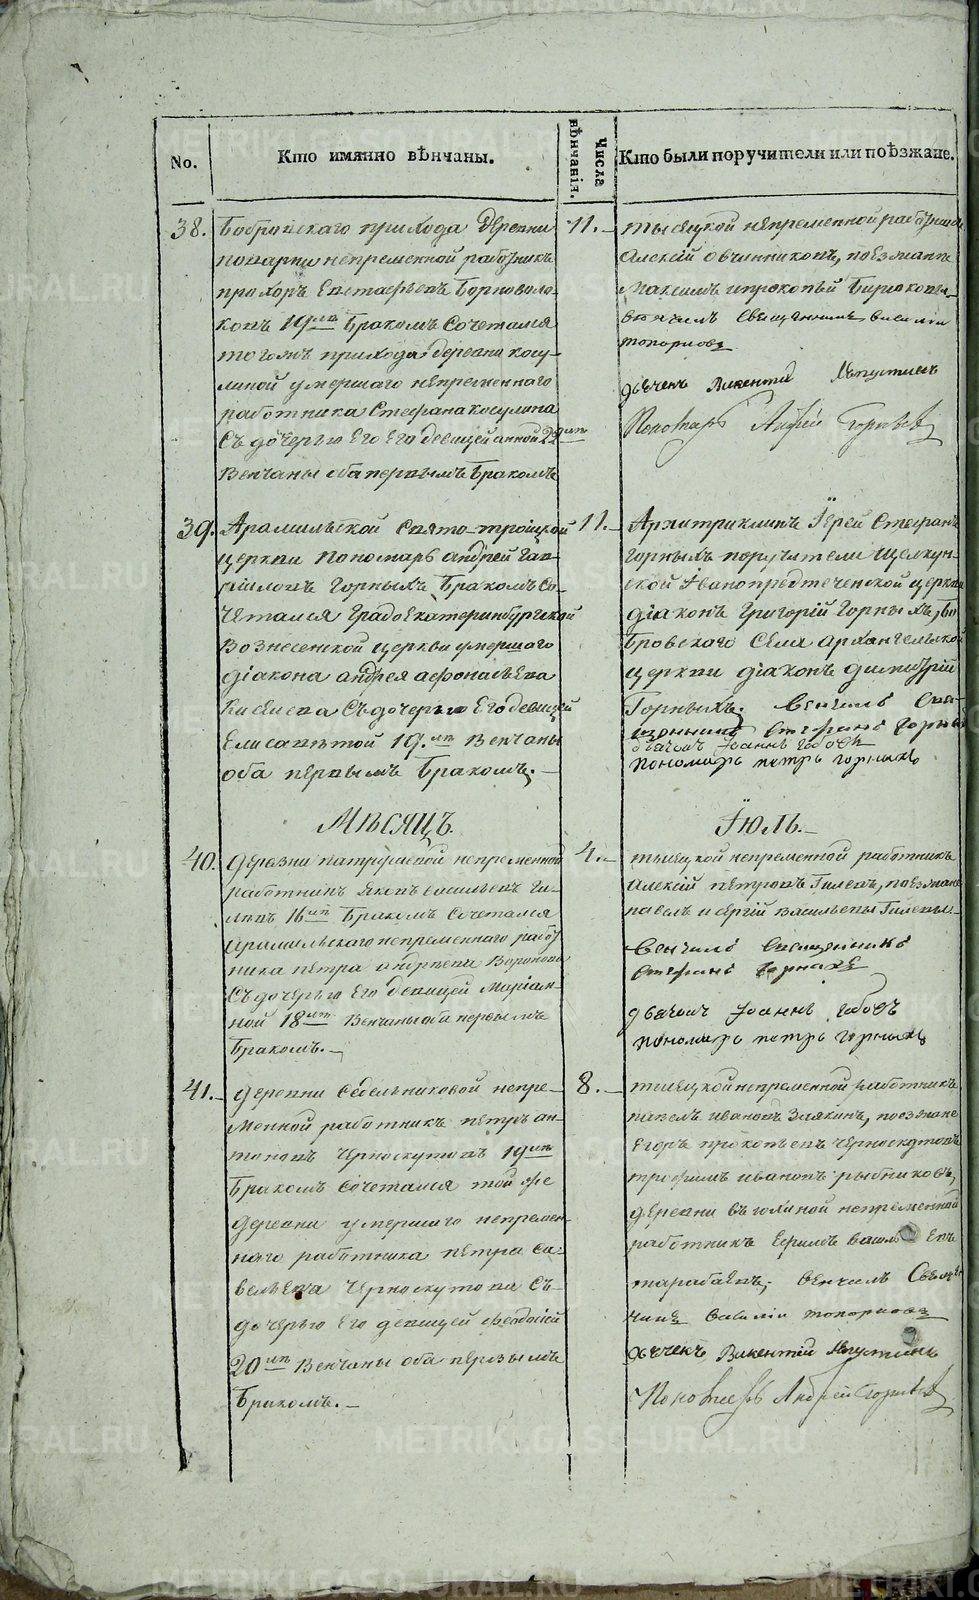 No.
Кто имянно вѣнчаны.
Числа вѣнчанія.
Кто были поручители или поѣзжане.
38.
Бобровскаго прихода деревни
поварни непременной работникъ
прохоръ Евстафьевъ Бороволо-
ковъ 19 лѣтъ Бракомъ сочетался
тогожъ прихода деревни косу-
линой умершаго непременнаго
работника Стефана косулина
съ дочерью Его Его девицей анной
Венчаны оба первымъ Бракомъ
11.
тысяцкой непременной
Алексій овчинниковъ, поезжана
Максимъ ипрокопьй Бирюковы
Священникъ василіи
топорковъ
дьячекъ Викентій
Пономарь Андрей Горныхъ
39.
Арамильской Свято-троицкой
церкви пономарь андрей Гав-
риловъ Горныхъ Бракомъ со-
четался градоЕкатеринбургской
Вознесенской церкви умершаго
діакона андрея афонасьева
Киселева съ дочерью Его девицей
Елисаветой 19. лѣтъ Венчаны
оба первымъ Бракомъ.
11.
Архитриклинъ Іерей Стефанъ
Горныхъ поручители Щелкун-
ской Иванопредтеченской церкви
діаконъ Григорій Горныхъ, Бо-
бровскаго Села архангельской
церкви діаконъ димитрій
Горныхъ. Венчалъ Свя-
щенникъ Стефанъ Горныхъ
дьячокъ Іоаннъ
пономарь петръ горныхъ
Мѣсяцъ
Іюль.
40.
деревни патрушевой непременной
работникъ Яковъ васильевъ Ги-
левъ 16 лѣтъ Бракомъ сочетался
арамильскаго непременнаго рабо
ника петра андреева Воронова
съ дочерью Его девицей Маріам-
ной 18 лѣтъ Венчаны оба первымъ
Бракомъ.
4.
тысяцкой непременной работникъ
алексій петровъ Гилевъ, поезжане
павелъ и сергій васильевы Гилевы.
Венчалъ Священникъ
Стефанъ Горныхъ
дьячокъ Іоаннъ
пономарь петръ горныхъ
41.
деревни Седельниковой непре-
менной работникъ петръ ан-
тоновъ черноскутовъ 19 лѣтъ
Бракомъ сочетался той же
деревни умершаго непремен-
наго работника петра са-
вельева черноскутова съ
дочерью Его девицей феодосіей
20 лѣтъ Венчаны оба первымъ
Бракомъ.
8.
тысяцкой непременной работникъ
павелъ ивановъ Зыкинъ, поезжане
Егоръ прокопьевъ черноскутовъ
трофимъ ивановъ рыбниковъ,
деревни непременной
работникъ Ефимъ
Венчалъ Священ-
никъ василіи топорковъ
дьячекъ Викентій
Пономарь Андрей Горныхъ
METRIKI.GASO-URAL.RU